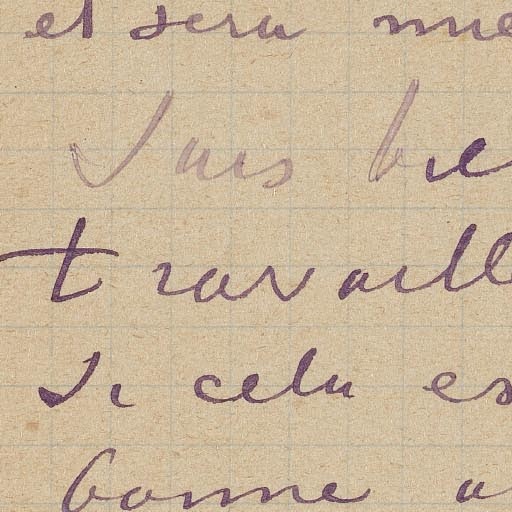 et sera mie
Suis bie
travaill
Si cela es
bonne a